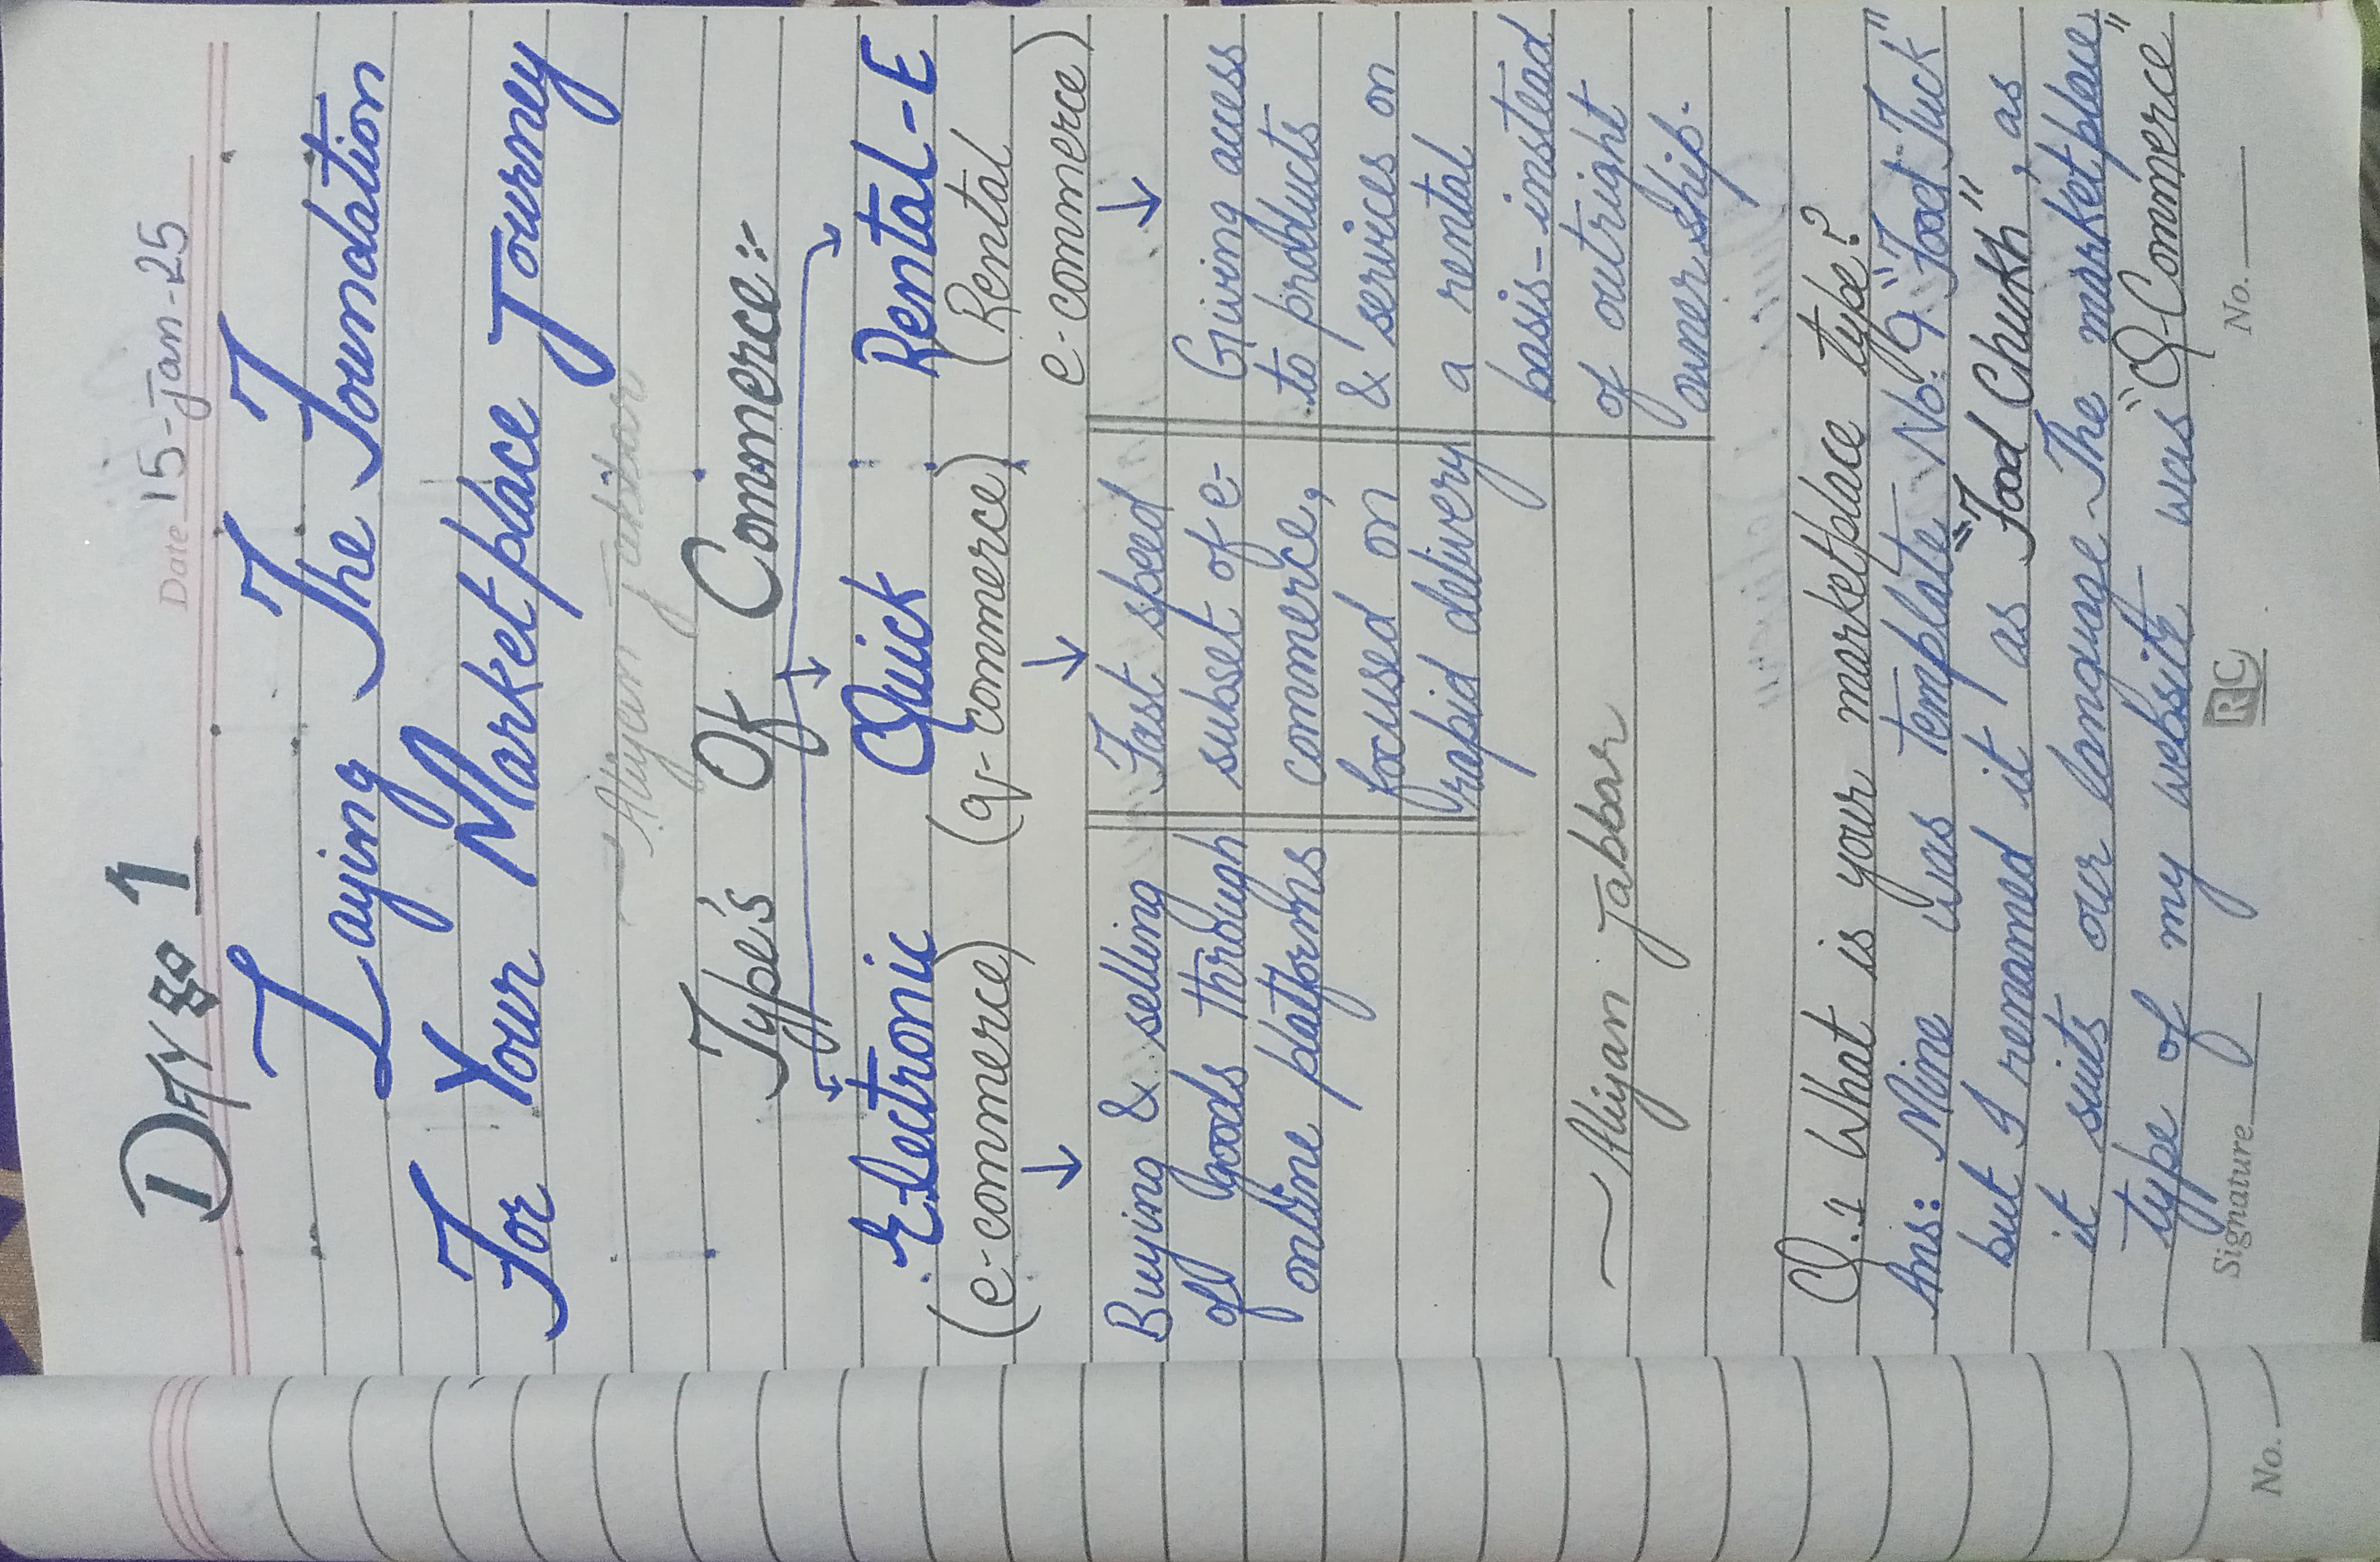 DAY 1
Date 15-Jan-25
Laying The Foundation
For Your Marketplace Journey
~Aliyan Jabbar
Type's Of Commerce:-
Electronic Quick Rental-E
(e-commerce) (q-commerce) (Rental
e-commerce)
Buying & selling
of goods through
online platforms
Fast speed
subset of e-
commerce,
focused on
rapid delivery
Giving access
to products
& services on
a rental
basis-instead
of outright
owner ship.
~Aliyan Jabbar
Q.1 What is your marketplace type?
Ans: Mine was template No. 9 "Food Tuck"
but I renamed it as "Food Chukh", as
it suits our language. The marketplace
type of my website was "Q-Commerce"
Signature
RC
No.
No.